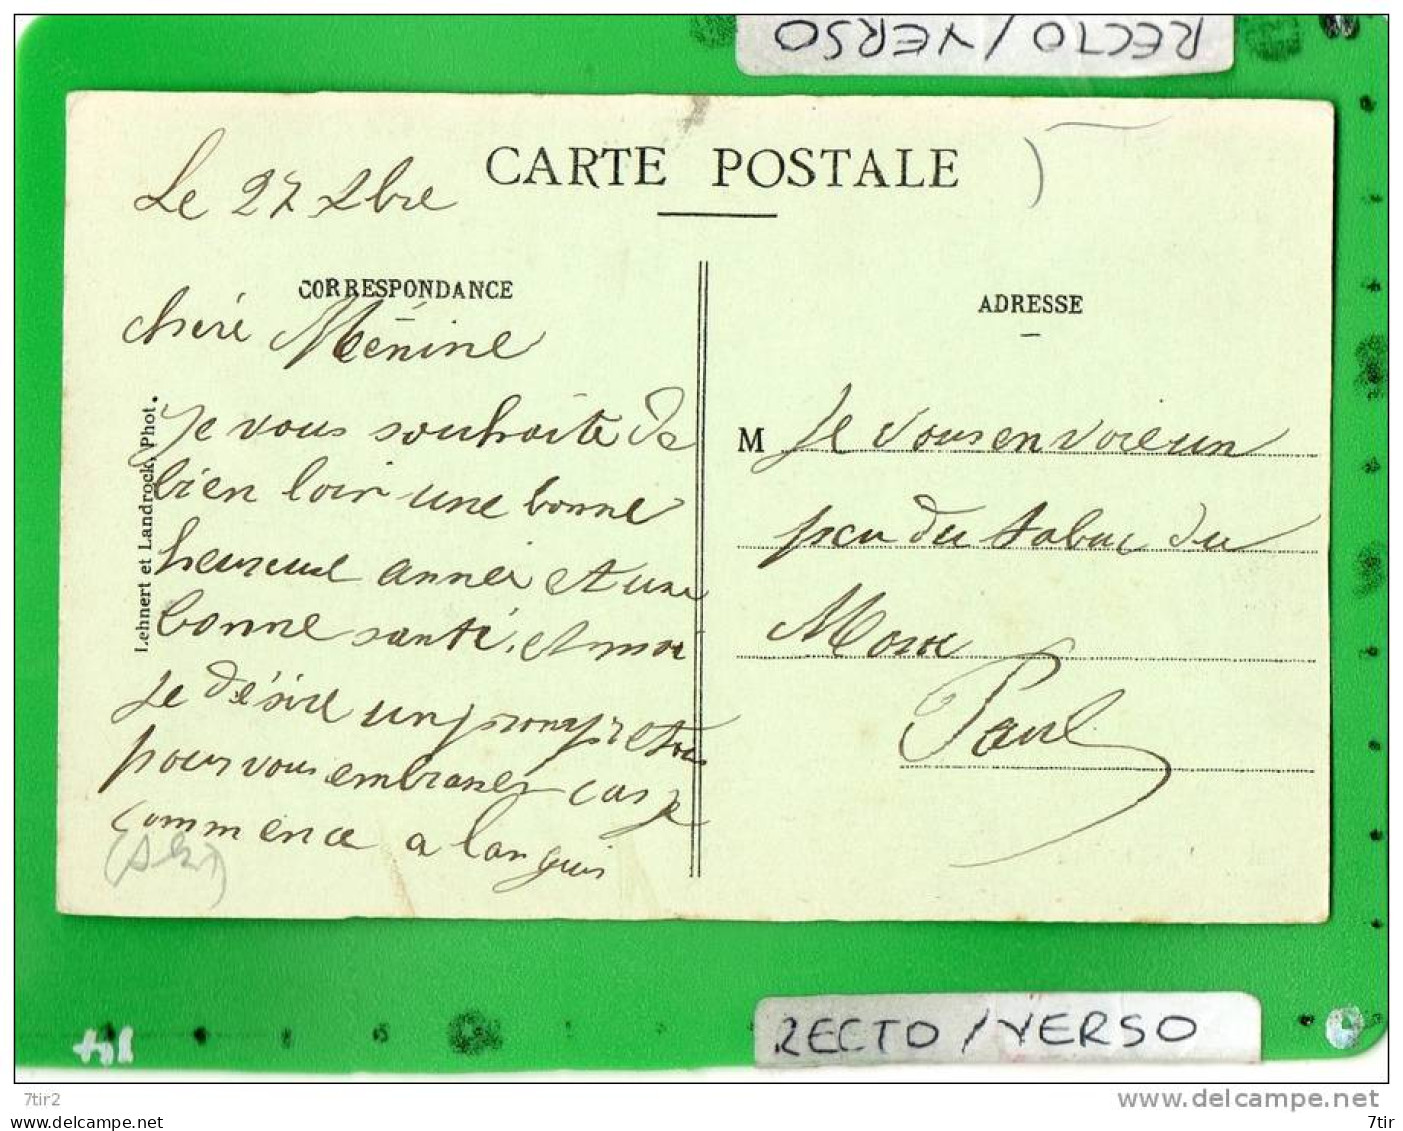 RECTO / VERSO
CARTE POSTALE
Le 27 Xbre
CORRESPONDANCE
ADRESSE
chère Ménine
Je vous souhaite de
bien loin une bonne
heureuse année et une
bonne santé, et moi
je désire un prompt retour
pour vous embrasser car je
commence a languir
Lehnert et Landrock, Phot.
M Je vous envoie un
peu du tabac du
Maroc
Paul
RECTO / VERSO
7tir2
www.delcampe.net
www.delcampe.net
7tir